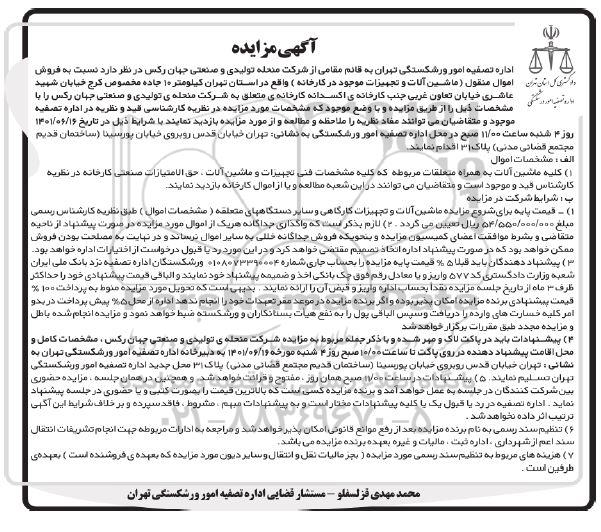 آگهی مزایده
دادگستری کل استان تهران
اداره تصفیه امور ورشکستگی
اداره تصفیه امور ورشکستگی تهران به قائم مقامی از شرکت منحله تولیدی و صنعتی جهان رکس در نظر دارد نسبت به فروش
اموال منقول ( ماشین آلات و تجهیزات موجود در کارخانه ) واقع در استان تهران کیلومتر ۱۰ جاده مخصوص کرج خیابان شهید
عاشری خیابان تعاون غربی جنب کارخانه ی اکسدانه کارخانه ی متعلق به شرکت منحله ی تولیدی و صنعتی جهان رکس را با
مشخصات ذیل را از طریق مزایده و با وضع موجود که مشخصات مورد مزایده در نظریه کارشناسی قید و نظریه در اداره تصفیه
موجود و متقاضیان می توانند مفاد نظریه را ملاحظه و مطالعه و از مورد مزایده بازدید نمایند با شرایط ذیل در تاریخ ۱۴۰۱/۰۶/۱۶
روز ۴ شنبه ساعت ۱۱/۰۰ صبح در محل اداره تصفیه امور ورشکستگی به نشانی: تهران خیابان قدس روبروی خیابان پورسینا (ساختمان قدیم
مجتمع قضائی مدنی) پلاک۳۱ اقدام نمایند.
الف : مشخصات اموال
۱) کلیه ماشین آلات به همراه متعلقات مربوطه که کلیه مشخصات فنی تجهیزات و ماشین آلات ، حق الامتیازات صنعتی کارخانه در نظریه
کارشناس قید و موجود است و متقاضیان می توانند در این شعبه مطالعه و یا از اموال کارخانه بازدید نمایند.
ب : شرایط شرکت در مزایده
۱) _ قیمت پایه برای شروع مزایده ماشین آلات و تجهیزات کارگاهی و سایر دستگاههای متعلقه ( مشخصات اموال ) طبق نظریه کارشناس رسمی
مبلغ ۵۴/۵۵۰/۰۰۰/۰۰۰ ریال تعیین می گردد . ۲) لازم بذکر است که واگذاری جداگانه هریک از اموال مورد مزایده در صورت پیشنهاد از ناحیه
متقاضی و بشرط موافقت اعضای کمیسیون مزایده و بنحویکه فروش جداگانه خللی به سایر اموال نرساند و در نهایت به مصلحت بودن فروش
ممکن خواهد بود که در صورت پیشنهاد اداره اتخاذ تصمیم مقتضی خواهد کرد و در این مورد رد یا قبول درخواست از اختیارات اداره خواهد بود.
۳ ) پیشنهاد دهندگان باید قبلا ۵ % قیمت پایه مزایده را بحساب جاری شماره ۰۱۰۸۰۷۳۳۹۰۰۰۴ ورشکستگان اداره تصفیه نزد بانک ملی ایران
شعبه وزارت دادگستری کد ۵۷۷ واریز و یا معادل رقم فوق چک بانکی اخذ و ضمیمه پیشنهاد خود نمایند و الباقی قیمت پیشنهادی خود را حداکثر
ظرف ۳ ماه از تاریخ جلسه مزایده نقداً بحساب اداره واریز و قبض آن را ارائه نمایند . بدیهی است که تحویل مورد مزایده منوط به پرداخت ۱۰۰ %
قیمت پیشنهادی برنده مزایده امکان پذیر بوده و اگر برنده مزایده در موعد مقرر تعهدات خود را انجام ندهد اداره از محل ۵% پیش پرداخت در بدو
امر کلیه خسارت های وارده را دریافت و سپس الباقی پول را به نفع هیأت بستانکاران و ورشکسته ضبط خواهد نمود و مزایده انجام شده باطل
و مزایده مجدد طبق مقررات برگزار خواهد شد
۴) پیشنهادات باید در پاکت لاک و مهر شده و با ذکر جمله مربوط به مزایده شرکت منحله ی تولیدی و صنعتی جهان رکس ، مشخصات کامل و
محل اقامت پیشنهاد دهنده در روی پاکت تا ساعت ۱۰/۰۰ صبح روز ۴ شنبه مورخه ۱۴۰۱/۰۶/۱۶ به دبیرخانه اداره تصفیه امور ورشکستگی تهران به
نشانی : تهران خیابان قدس روبروی خیابان پورسینا (ساختمان قدیم مجتمع قضائی مدنی) پلاک۳۱ محل جدید اداره تصفیه امور ورشکستگی
تهران تسلیم نمایند. ۵) پیشنهادات در ساعت ۱۱/۰۰ صبح همان روز ، مفتوح و قرائت خواهد شد. و همچنین در همان جلسه ، مزایده حضوری
بین شرکت کنندگان در جلسه به عمل خواهد آمد و برنده مزایده کسی است که بالاترین قیمت را بصورت کتبی و یا حضوری در جلسه پیشنهاد
نماید . اداره تصفیه در رد یا قبول یک یا کلیه پیشنهادات مختار است و به پیشنهادات مبهم ، مشروط ، فاقد سپرده و بر خلاف شرایط این آگهی
ترتیب اثر داده نخواهد شد .
۶) تنظیم سند رسمی به نام برنده مزایده بعد از رفع موانع قانونی امکان پذیر خواهد شد و مراجعه به ادارات مربوطه جهت انجام تشریفات انتقال
سند اعم از شهرداری ، اداره ثبت ، مالیات و غیره بعهده برنده مزایده می باشد.
۷ ) هزینه های مربوط به تنظیم سند رسمی مورد مزایده ( بجز مالیات نقل و انتقال و سایر دیون مورد مزایده که بعهده ی فروشنده است ) بعهده ی
طرفین است .
محمد مهدی قزلسفلو – مستشار قضایی اداره تصفیه امور ورشکستگی تهران